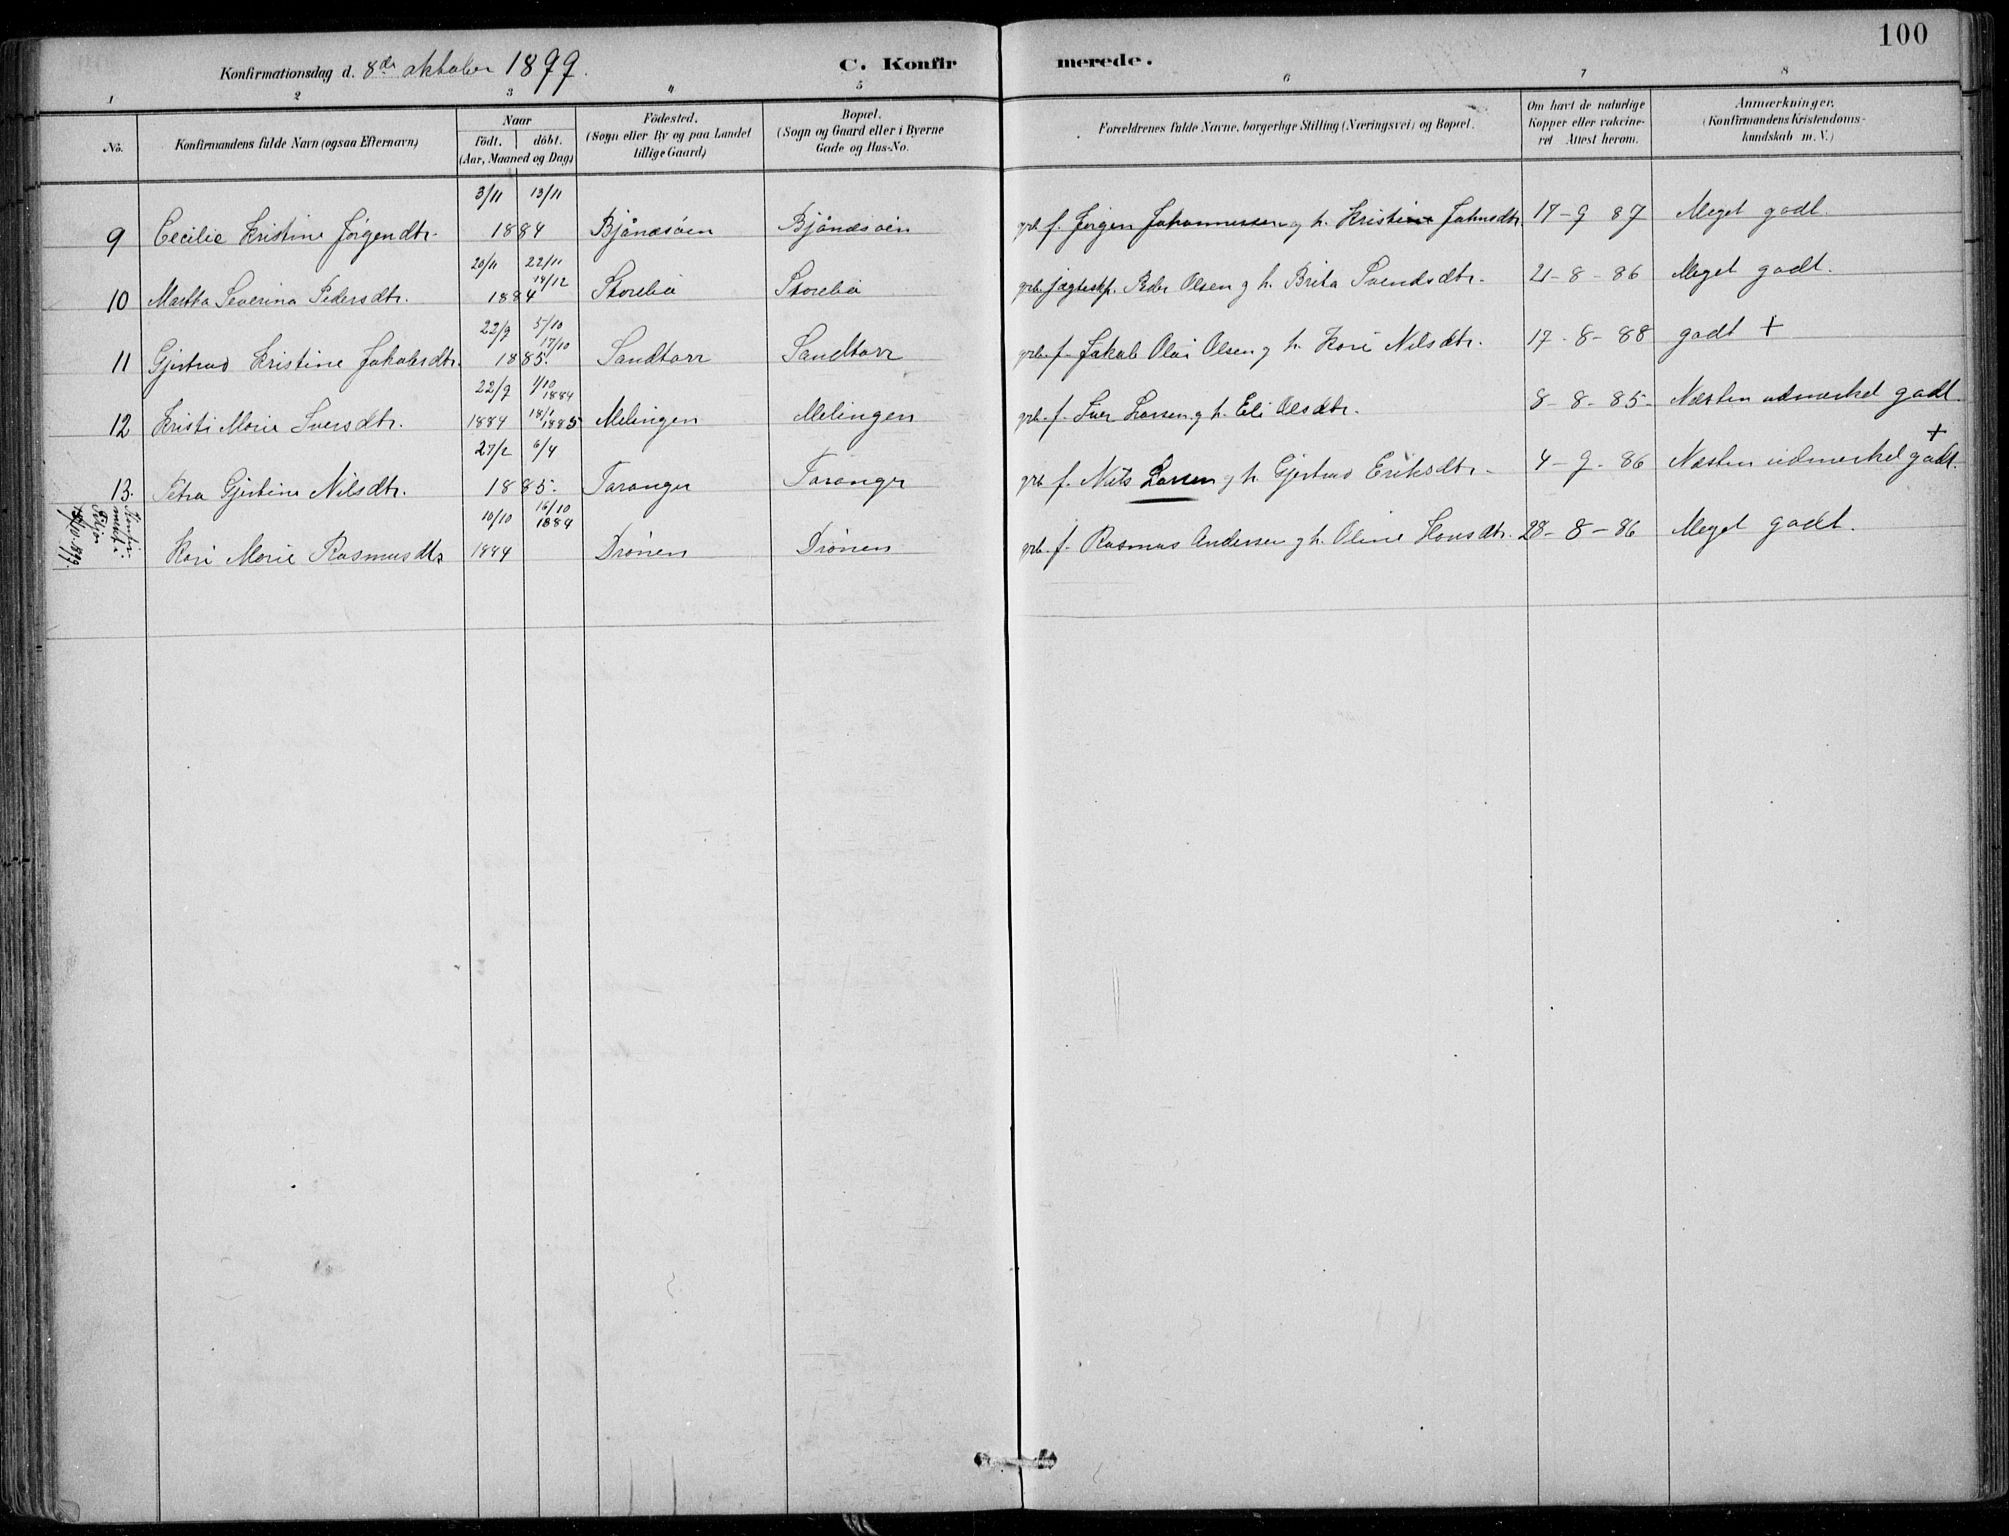 100
Konfirmationsdag d. 8de oktober 1899. C. Konfirmerede.
1 2 3 4 5 6 7 8
No. Konfirmandens fulde Navn (ogsaa Efternavn) Naar födt. döbt. (Aar, Maaned og Dag) Födested. (Sogn eller By og paa Landet tillige Gaard) Bopæl. (Sogn og Gaard eller i Byerne Gade og Hus-No. Forældrenes fulde Navne, borgerlige Stilling (Næringsvei) og Bopæl. Om havt de naturlige Kopper eller vakcineret Attest herom. Anmærkninger. (Konfirmandens Kristendomskundskab m. V.)
3/11 13/11
9 Cecilie Kristine Jörgendtr. 1884 Bjånæsöen Bjånæsöen grb. f. Jörgen Johannessen og h. Kristine Johnsdtr. 17-9 87 Meget godt.
20/11 22/11 14/12
10 Martha Severina Pedersdtr. 1884 Storebø Storebø grb. jægteskp. Peder Olsen og h. Brita Svendsdtr. 21-8-86 Meget godt.
22/9 5/10 17/10
11 Gjertrud Kristine Jakobsdtr. 1885. Sandtorv Sandtorv grb. f. Jakob Olai Olsen og h. Kari Nilsdtr. 17-8-88 godt +
22/9 1/10 1884
12 Kristi Marie Iversdtr. 1884 18/1 1885 Melingen Melingen grb. f. Iver Larsen og h. Eli Olsdtr. 8-8-85- Næsten udmerket godt.
27/2 6/4
13. Petra Gjertine Nilsdtr. 1885. Taranger Taranger grb f. Nils Larsen og h. Gjertrud Eriksdtr. 4-9-86 Næsten udmerket godt. +
10/10 16/10 1884
Kari Marie Rasmusdtr 1884 Drönen Drönen grb. f. Rasmus Andersen og h. Oline Hansdtr. 28-8-86 Meget godt.